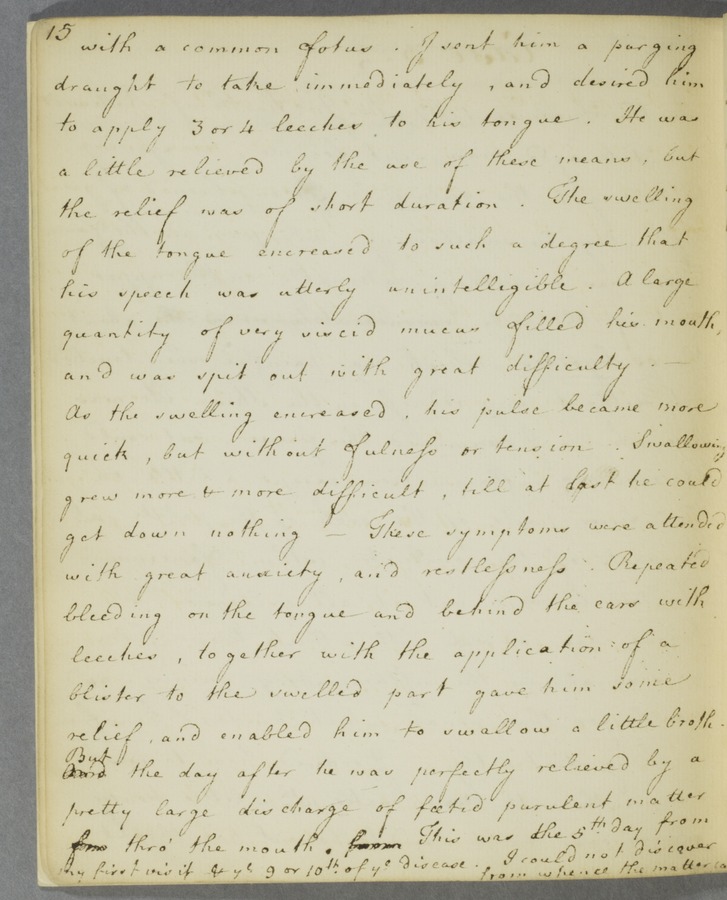 15
with a common fotus. I sent him a purging
draught to take immediately, and desired him
to apply 3 or 4 leeches to his tongue. He was
a little relieved by the use of these means, but
the relief was of short duration. The swelling
of the tongue encreased to such a degree that
his speech was utterly unintelligible. A large
quantity of very viscid mucus filled his mouth,
and was spit out with great difficulty. —
As the swelling encreased, his pulse became more
quick, but without fulness or tension. Swallowing
grew more & more difficult, till at last he could
get down nothing — These symptoms were attended
with great anxiety, and restlessness. Repeated
bleeding on the tongue and behind the ears with
leeches, together with the application of a
blister to the swelled part gave him some
relief, and enabled him to swallow a little broth.
But
And the day after he was perfectly relieved by a
pretty large discharge of fœtid purulent matter
from thro' the mouth. from This was the 5th day from
my first visit & ye 9 or 10th of ye disease. I could not discover
from whence the matter